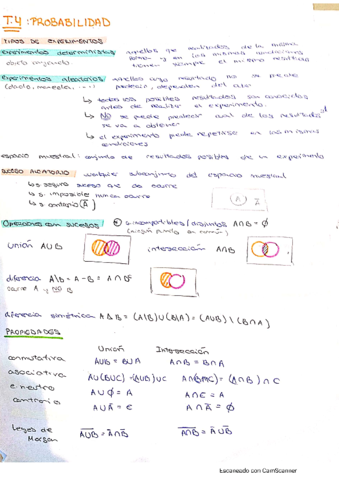 T.4: PROBABILIDAD
TIPOS DE EXPERIMENTOS
experimentos deterministas aquellos que realizados de la misma
forma y en las mismas condiciones
tienen siempre el mismo resultado
experimentos aleatorios aquellos cuyo resultado no se puede
(dado, moneda, ...) predecir, dependen del azar
↳ todos los posibles resultados son conocidos
antes de realizar el experimento.
↳ NO se puede predecir cual de los resultados
se va a obtener
↳ el experimento puede repetirse en las mismas
condiciones
espacio muestral: conjunto de resultados posibles de un experimento
SUCESO ALEATORIO cualquier subconjunto del espacio muestral
↳ s. seguro suceso que da ocurre
↳ s. imposible nunca ocurre
↳ s. contrario (Ā)
A
Operaciones con sucesos
incompatibles / disjuntos A∩B = ∅
Unión A∪B
intersección A∩B
diferencia A\B = A - B = A ∩ B̅
ocurre A y NO B
diferencia simétrica A Δ B = (A\B) ∪ (B\A) = (A∪B) \ (B∩A)
PROPIEDADES
Unión Intersección
conmutativa A∪B = B∪A A∩B = B∩A
asociativa A∪(B∪C) = (A∪B)∪C A∩(B∩C) = (A∩B)∩C
e. neutro A∪∅ = A A∩E = A
contrario A∪Ā = E A∩Ā = ∅
Leyes de
Morgan
A̅∪̅B̅ = Ā∩B̅ A̅∩̅B̅ = Ā∪B̅
Escaneado con CamScanner